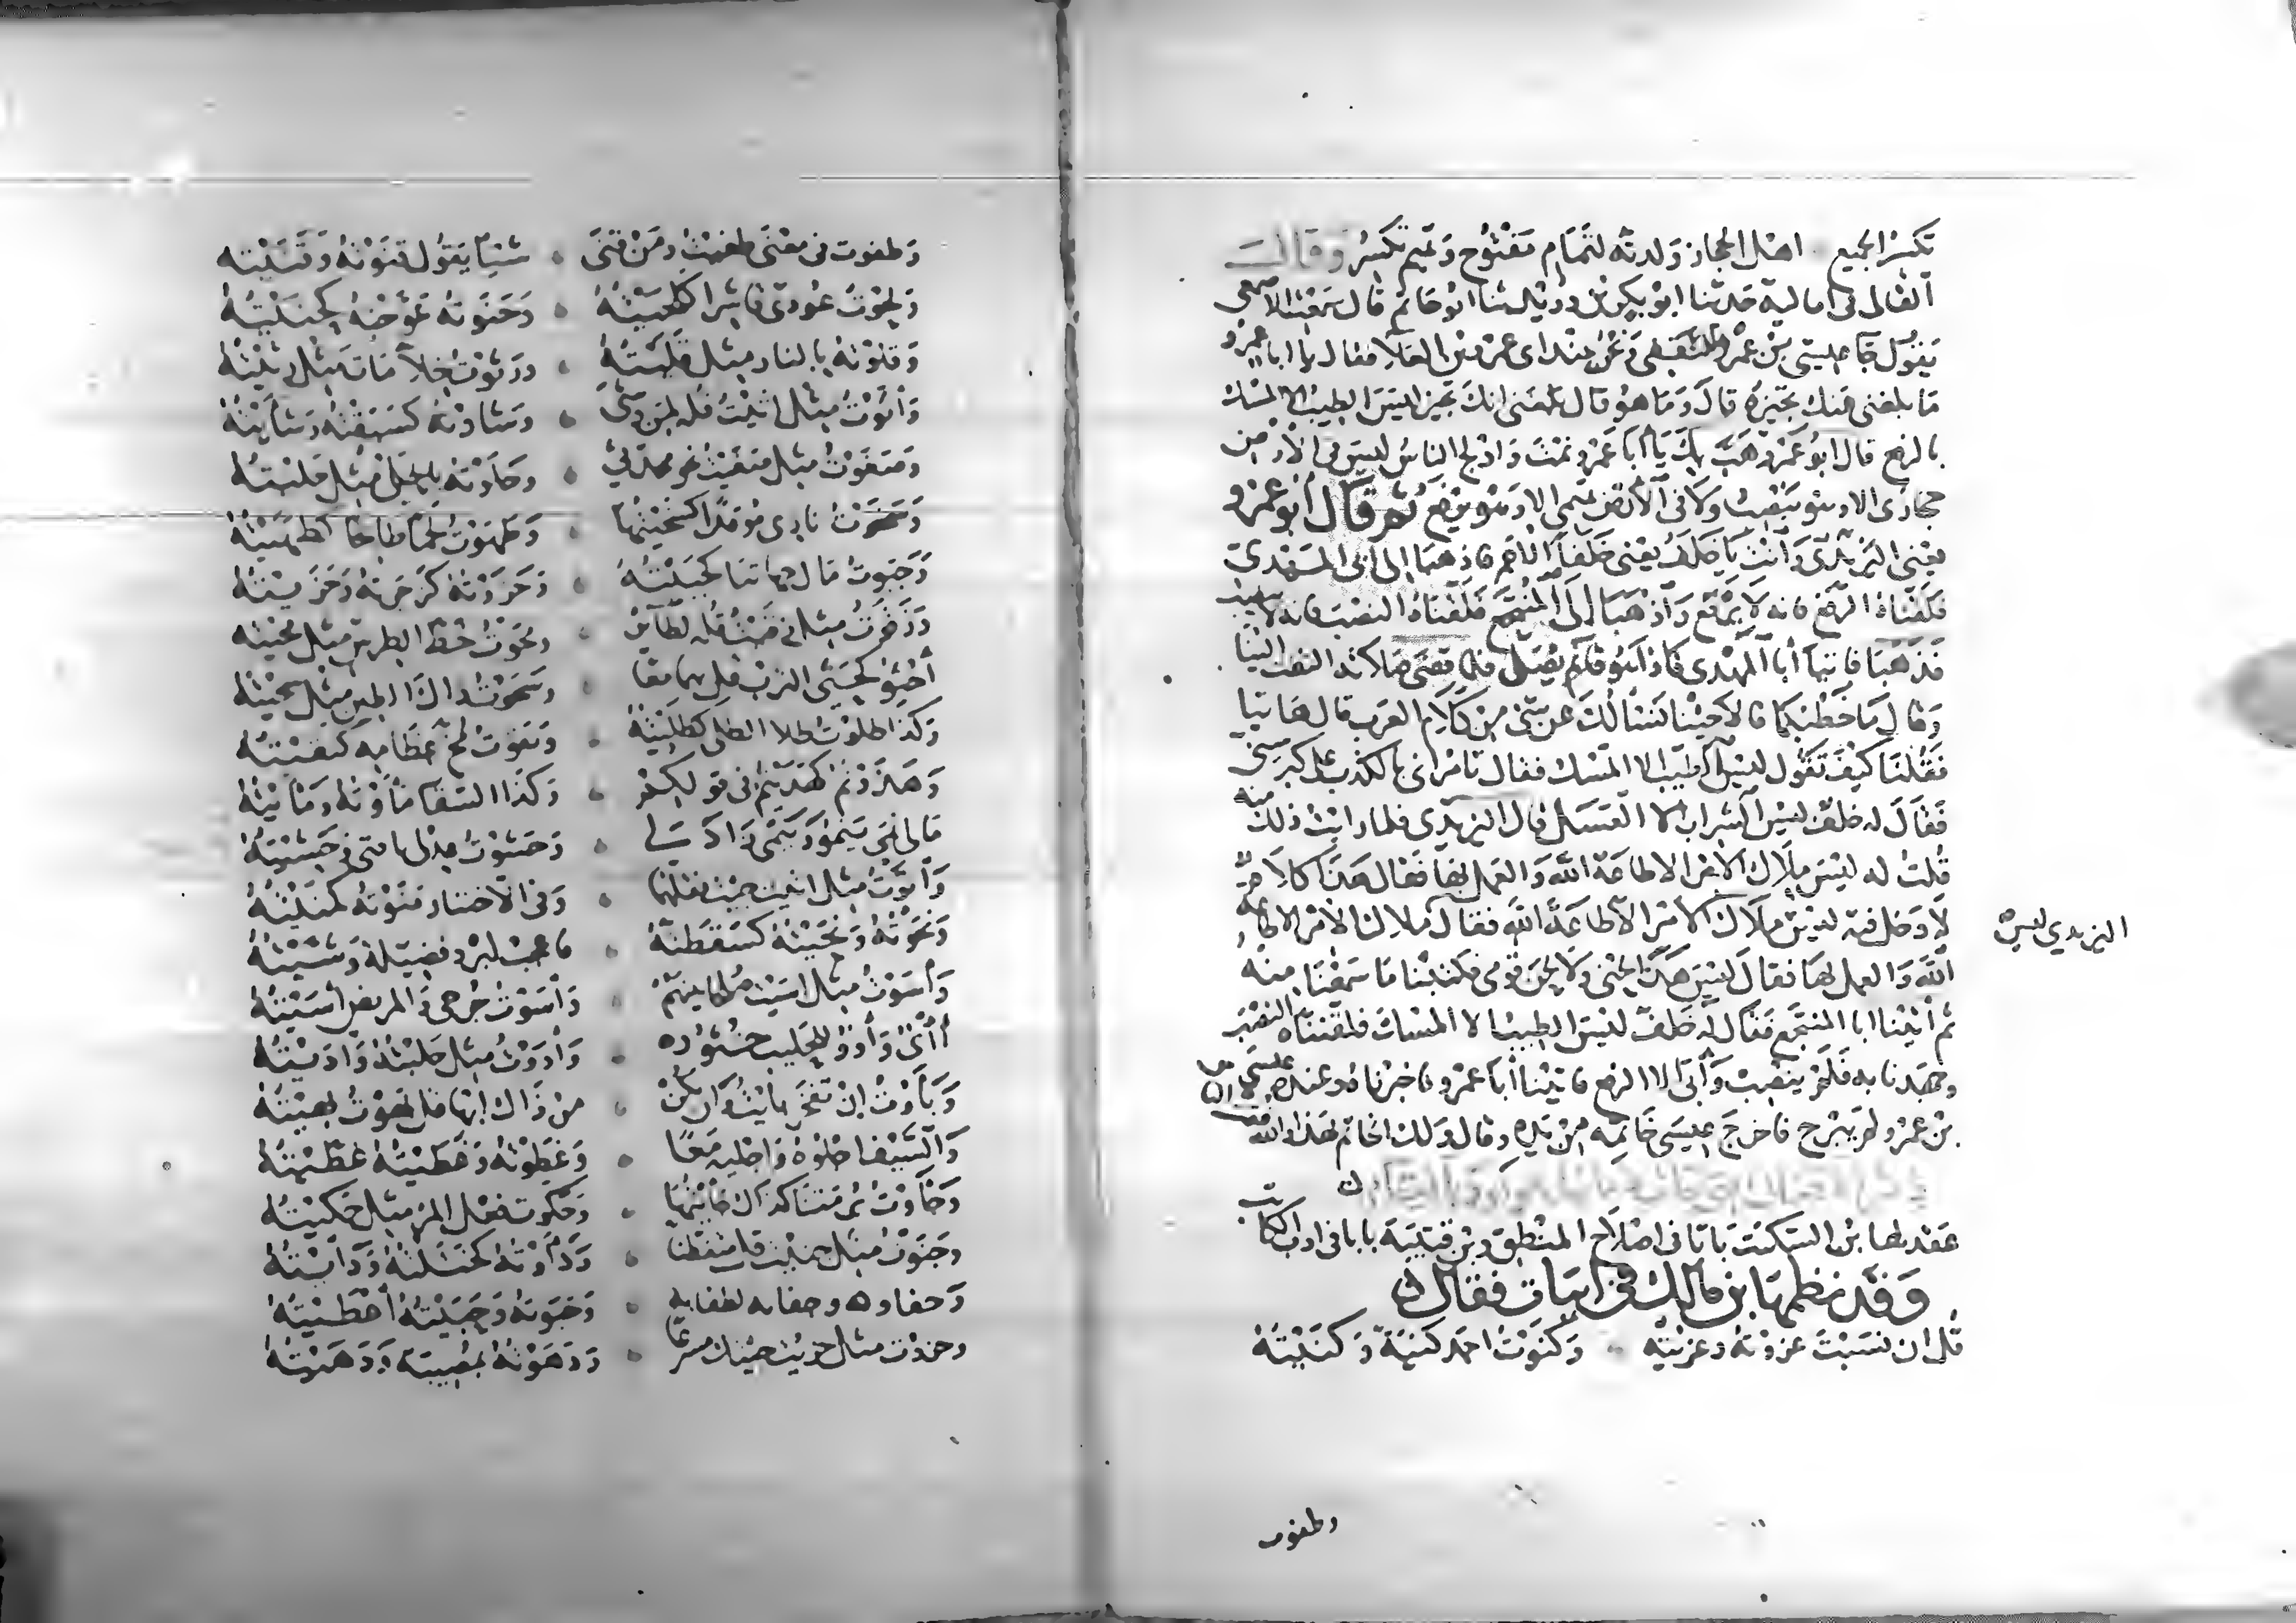 تكسر الجميع اهل الحجاز ولدته لتمام مفتوح وتميم تكسر وقال
القالى فى اماليه حدثنا ابو بكر بن دريد ثنا ابو حاتم قال سمعت الاصمعى
يقول جا عيسى بن عمر الثقفى ونحن عند ابى عمرو بن العلا فقال يا ابا عمرو
ما بلغنى عنك تجيزه قال وما هو قال بلغنى انك تجيز ليس الطيب الا المسك
بالرفع قال ابو عمرو هب بك يا أبا عمرو نمت وادلج الناس ليس فى الأرض
حجازى الا وهو ينصب ولا فى الأرض تميمى الا وهو يرفع ثم قال أبو عمرو
يعنى اليزيدى وأنت يا خلف يعنى خلفا الاحمر فاذهبا إلى ابى المهدى
فلقناه الرفع فانه لا يرفع واذهبا الى المنتجع فلقناه النصب فانه لا ينصب
فذهبا فاتيا أبا المهدى فاذا هو قائم يصلى فلما قضى صلاته التفت الينا
وقال ما خطبكما قالا جينا نسألك عن شى من كلام العرب قال هاتيا
فقلنا كيف تقول ليس الطيب الا المسك فقال تامرانى بالكذب على كبر سنى
فقال له خلف ليس الشراب الا العسل قال اليزيدى فلما رايت ذلك منه
قلت له ليس ملاك الامر الا طاعة الله والعمل بها فقال هذا كلام
لا دخل فيه ليس ملاك الأمر الا طاعة الله فقال ملاك الأمر الا طاعة
اليزيدى ليس
الله والعمل بها فقال ليس هذا لحنى ولا لحن قومى فكتبنا ما سمعنا منه
ثم أتينا ابا المنتجع فقال له خلف ليس الطيب الا المسك فلقنناه النصب
وجهدنا به فلم ينصب وأبى الا الرفع فاتينا أبا عمرو فاخبرناه وعنده عيسى
بن عمر ولم يبرح فاخرج عيسى خاتمه من يده وقال ولك الخاتم بهذا والله
عقد لها بن السكيت بابا فى اصلاح المنطق وبن قتيبة بابا فى ادب الكاتب
وقد نظمها بن مالك فى ابيات فقال
قل ان نسبت عزوته وعزيته وكنوت احمد كنية وكنيته
وطغوت
وطغوت فى معنى طغيت ومن قنى شيا يقول قنوته وقنيته
ولحوت عودى قاشرا كلحيته وحنوته عوجته كحنيته
وقلوته بالنار مثل قليته ورثوت خلا مات مثل رثيته
وأثوت مثل اثيت قله لمن وشى وشاوته كسبقته وشأيته
وصغوت مثل صغيت نحو محدثى وحلوته بالحلى مثل حليته
وسخوت نارى موقدا كسخيتها وطهوت لحما طابخا كطهيته
وجبوت مال جهاتنا كجبيته وحزوته كزجرته وحزيته
وزقوت مثل زقيت قله لطائر ومحوت خط الطرس مثل محيته
أحثو كحثى الترب قل بهما معا وسحوت ذاك الطين مثل سحيته
وكذا طلوت طلا الطلى كطليته ونقوت مخ عظامه كنقيته
وهذوتم كهذيتم فى قولكم وكذا السقا مأوته ومأيته
مالى نمى ينمو وينمى زاد لى وحشوت عدلى يا فتى وحشيته
وأتوت مثل اتيت جيت فقلهما وفى الاختبار منوته كمنيته
ونحوته ونحيته كقصدته فاعجب لبرد فضيلة وشيته
وأسوت مثل اسيت صلحا بينهم وأسوت جرحى والمريض أسيته
أأدى وأدو للحليب خثوره وأدوت مثل ختلته واديته
وبأوت إن تفخر بأيت وان يكن من ذاك ابهى قل بهوت بهيته
والسيف اجلوه واجليه معا وغطوته وغطيته غطيته
وجأوت برمتنا كذاك جأيتها وحكوت فعل المرء مثل حكيته
وجنوت مثل جنيت قل متفطنا ودأوته كختلته ودأيته
وحفاوه وحفايه لطفا به وحبوته وحبيته أعطيته
وحذوت مثل حذيت جيتك مسرعا ودهوته بمصيبة ودهيته